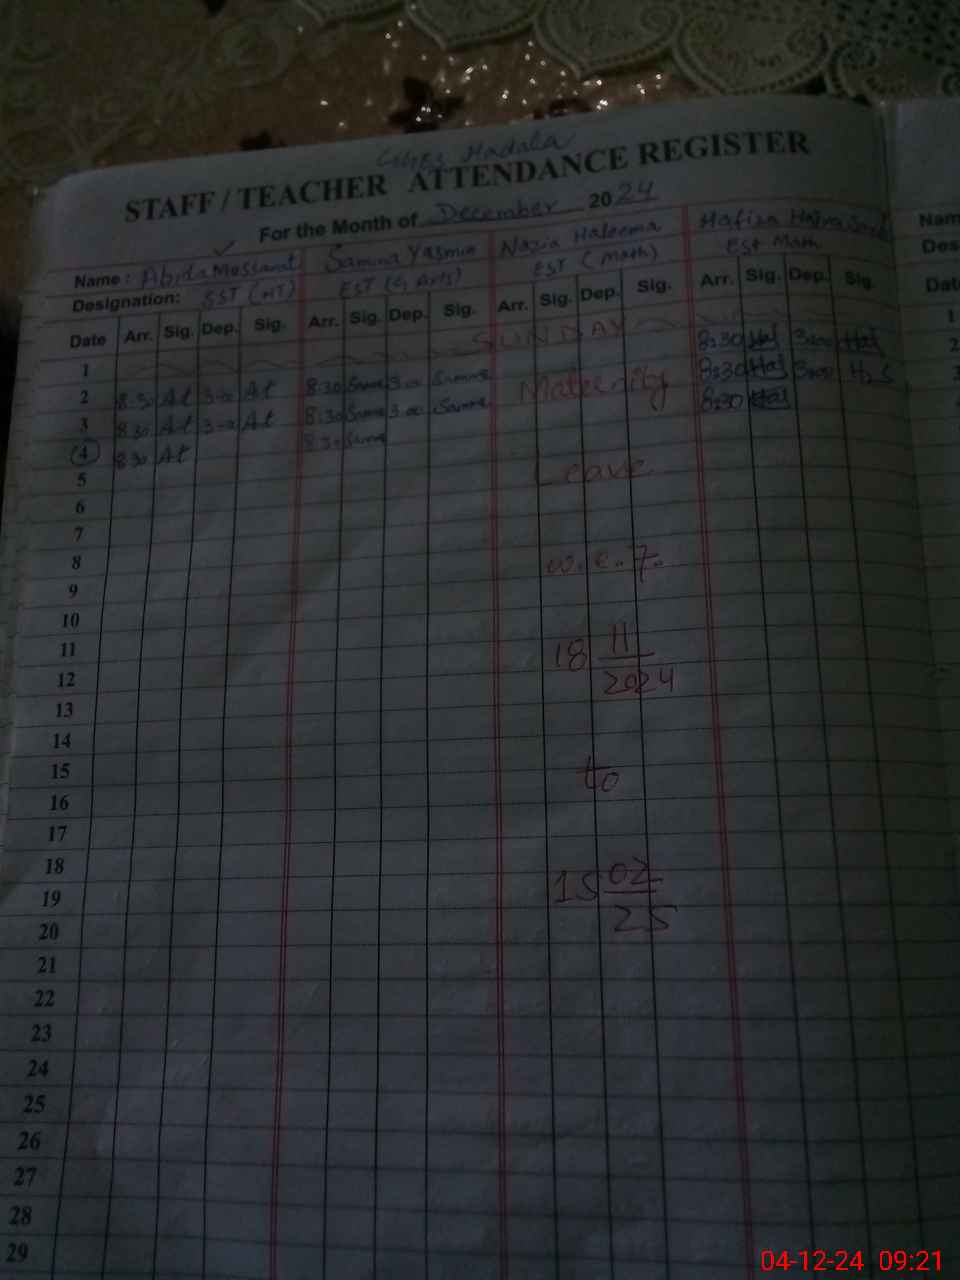 GGES Hadala
STAFF / TEACHER ATTENDANCE REGISTER
For the Month of December 2024
Name : Abida Mussarat Samina Yasmin Nazia Haleema Hafiza Hajra
Designation: SST (HT) EST (G, Arts) EST (Math) Est Math
Date Arr. Sig. Dep. Sig. Arr. Sig. Dep. Sig. Arr. Sig. Dep. Sig. Arr. Sig. Dep. Sig.
1 SUNDAY
2 8.30 At 3-00 At 8:30 3-00 Maternity 8:30 3:00
3 8.30 At 3-00 At 8:30 3-00 8:30 3:00
4 8.30 At 8:30 8:30
5 Leave
6
7
8 w.e.f.
9
10
11 18 11
12 2024
13
14
15 to
16
17
18
19 15 02
20 25
21
22
23
24
25
26
27
28
29
Nam
Des
Date
1
2
3
04-12-24 09:21